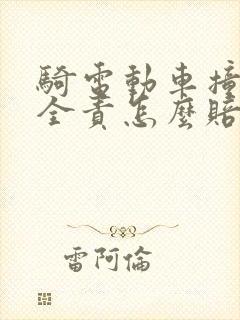 騎電動車撞
全責怎麼賠
雷阿倫